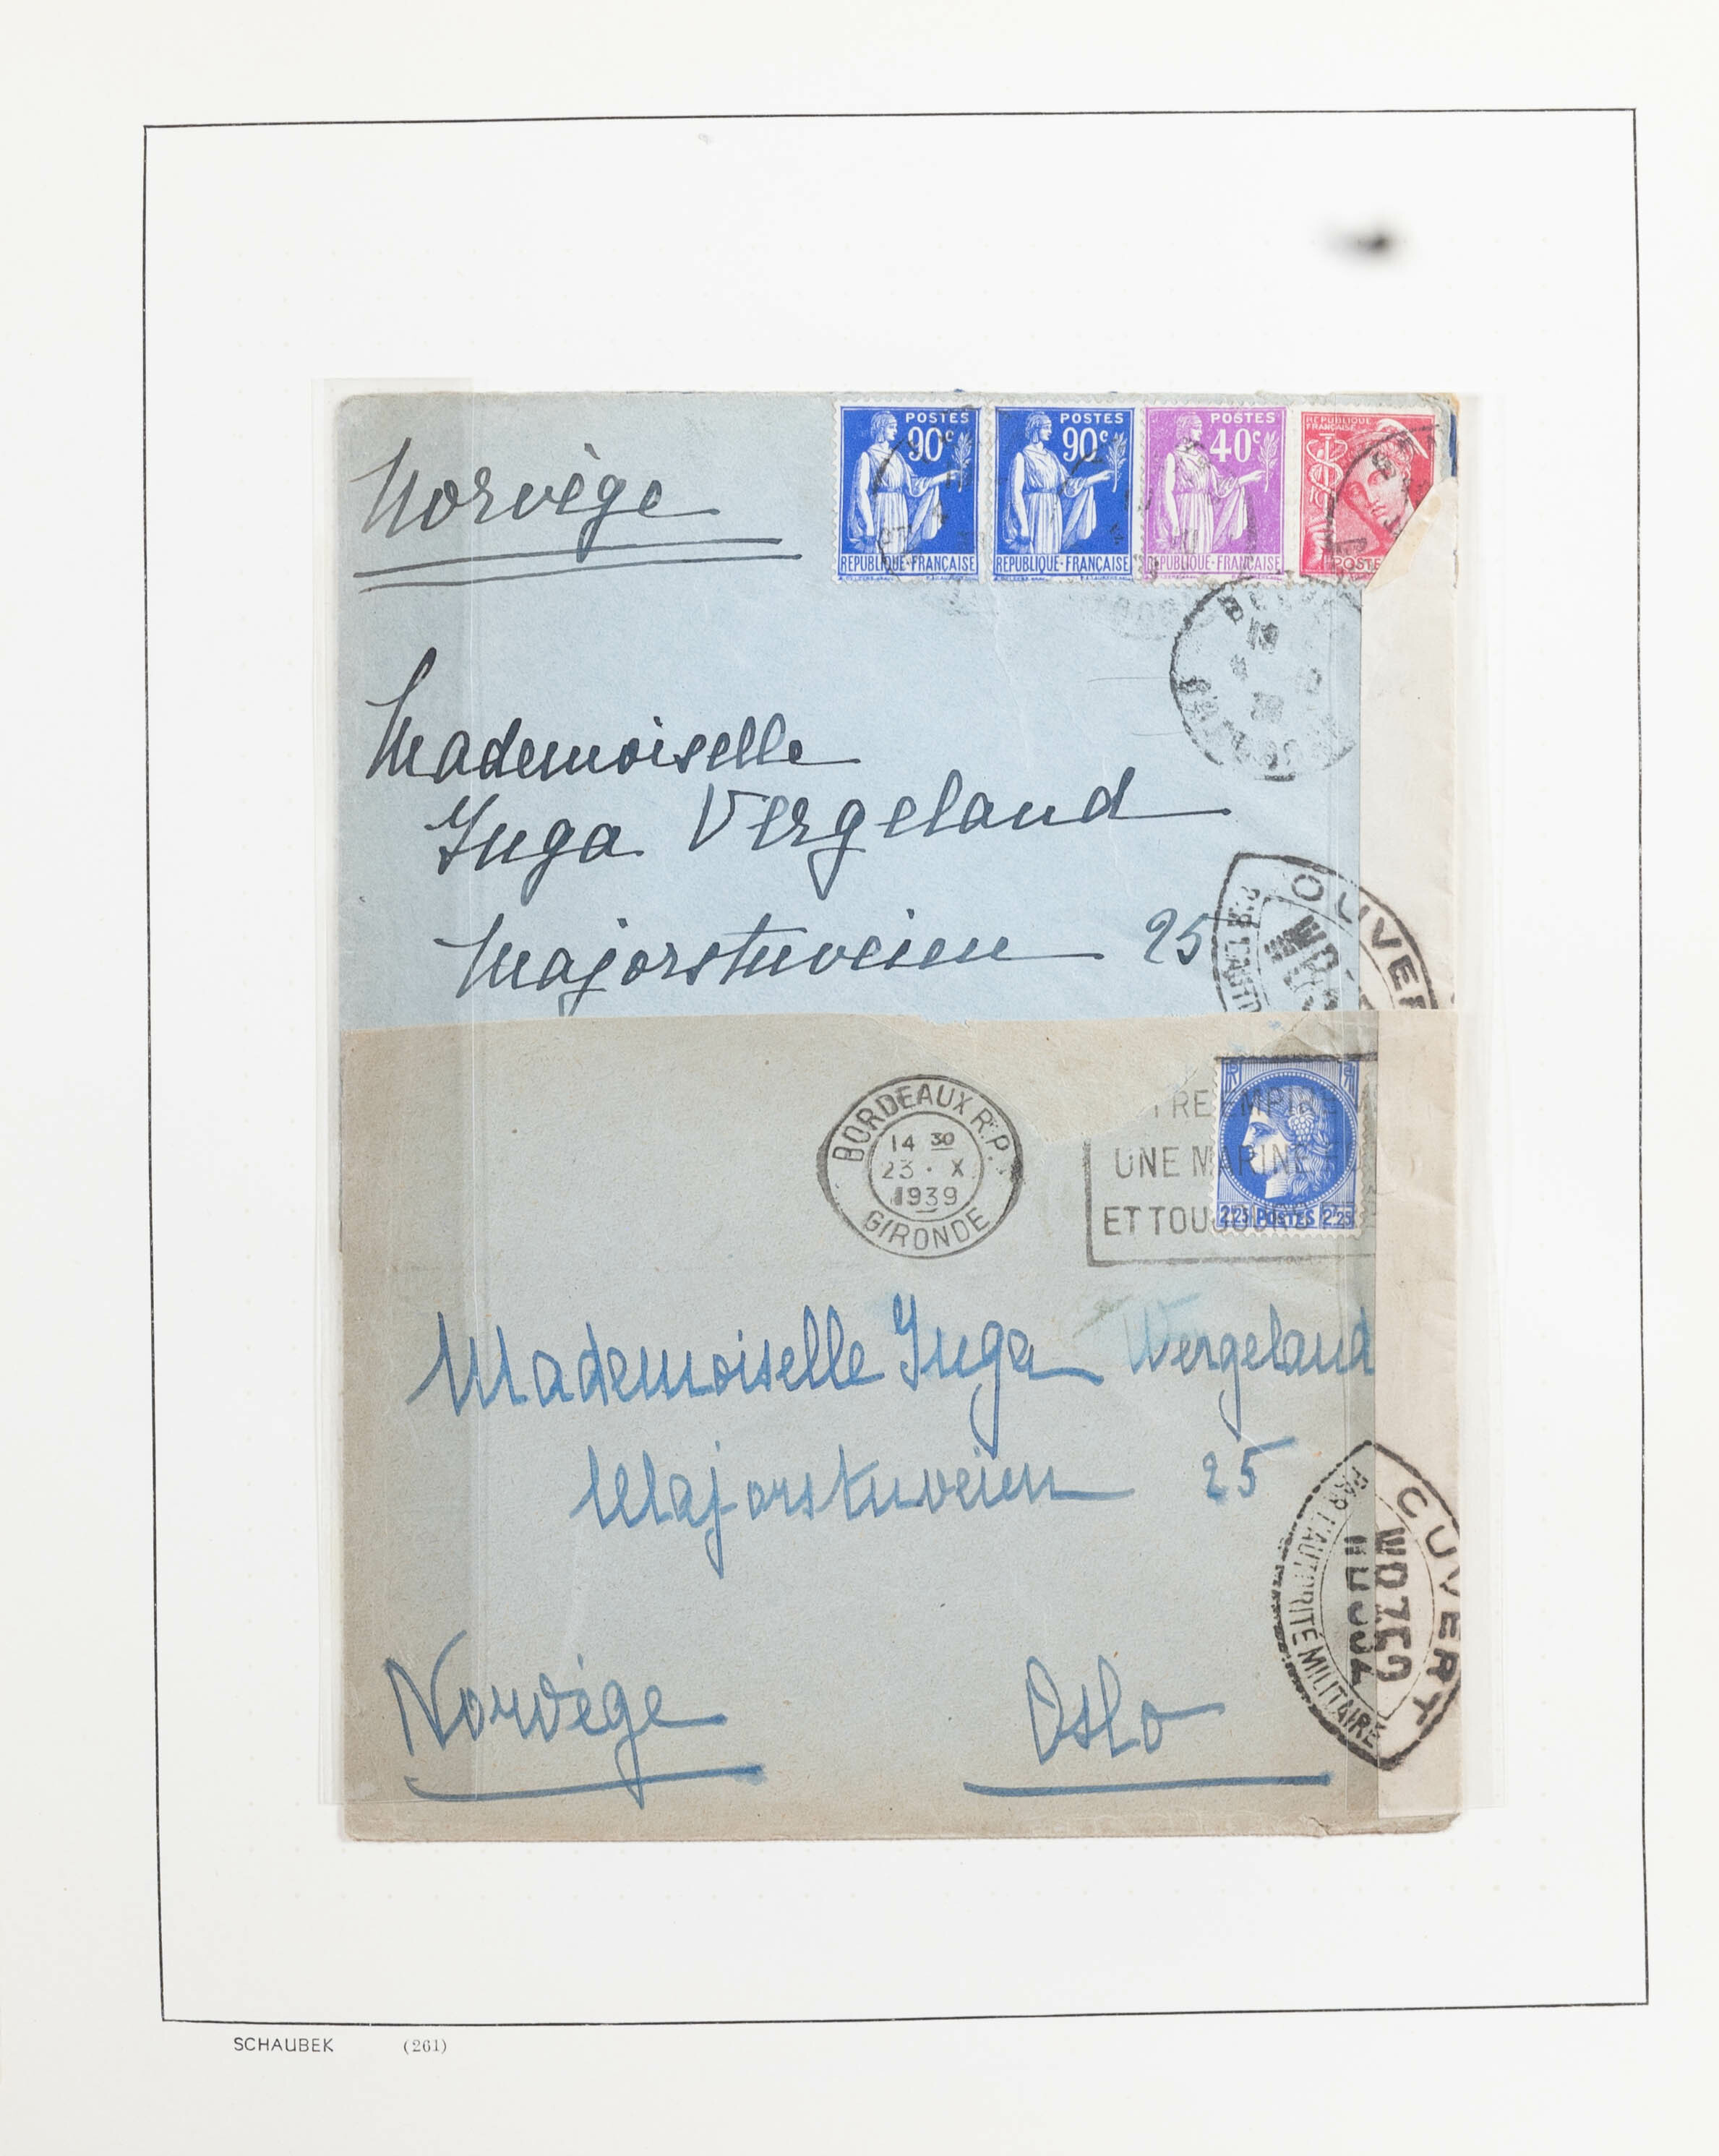 Norvège
POSTES
90c
REPUBLIQUE·FRANÇAISE
POSTES
90c
REPUBLIQUE·FRANÇAISE
POSTES
40c
REPUBLIQUE·FRANÇAISE
REPUBLIQUE
FRANÇAISE
POSTE
Mademoiselle
Inga Vergeland
Majorstuveien 25
OUVER
PAR L'AUTO
BORDEAUX R.P.
14 30
23 · X
1939
GIRONDE
TRE EMPIRE
UNE MARINE
ET TOUJOURS
2F25 POSTES 2F25
Mademoiselle Inga Wergeland
Majorstuveien 25
OUVERT
PAR L'AUTORITÉ MILITAIRE
Norvège Oslo
SCHAUBEK (261)